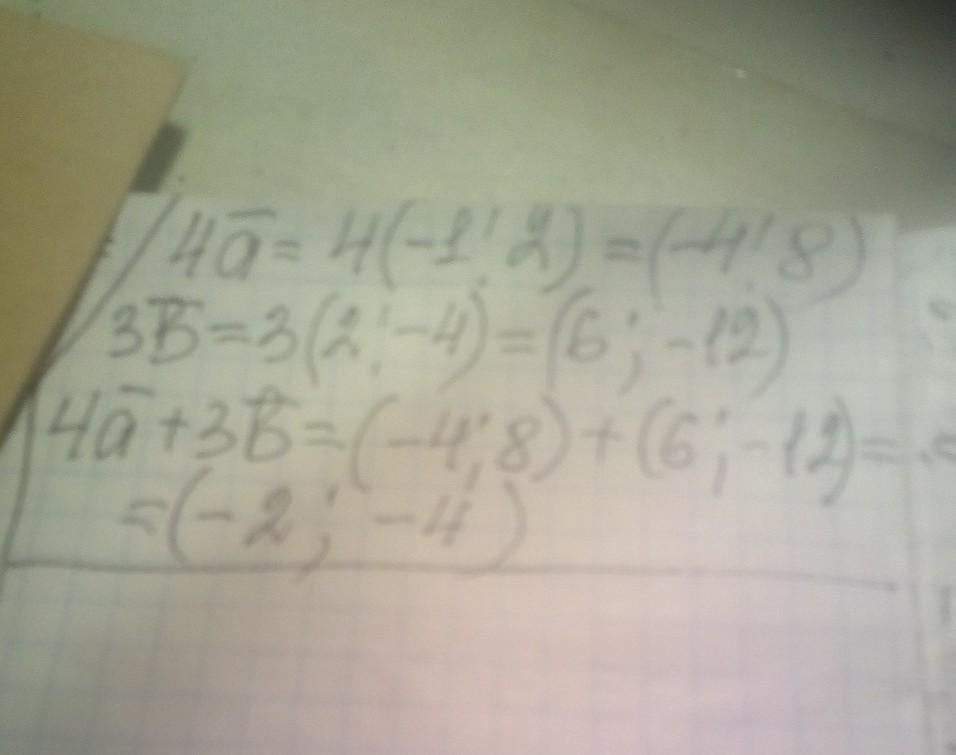 4a̅ = 4(-1; 2) = (-4; 8)
3b̅ = 3(2; -4) = (6; -12)
4a̅ + 3b̅ = (-4; 8) + (6; -12) =
= (-2; -4)